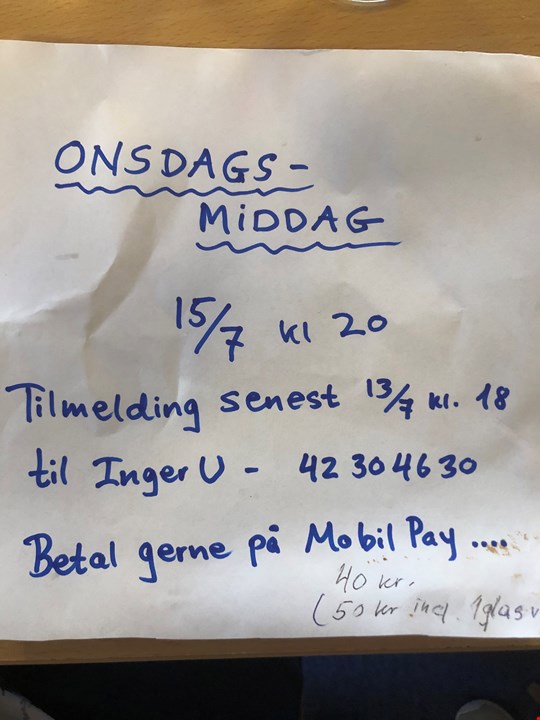 ONSDAGS-
MIDDAG
15/7 kl 20
Tilmelding senest 13/7 kl. 18
til Inger U - 42304630
Betal gerne på Mobil Pay ....
40 kr.
(50 kr incl. 1glas v